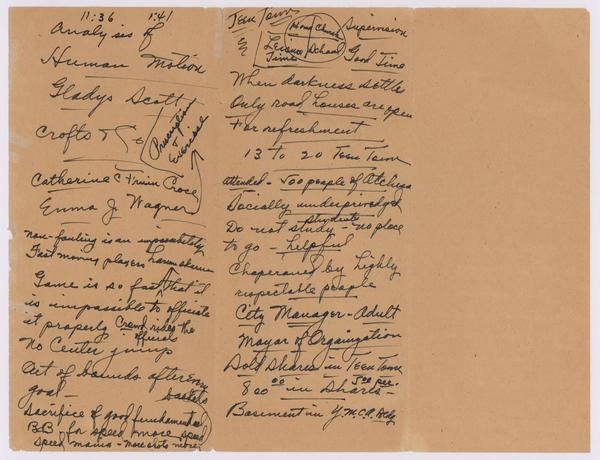 11:36 1:41
Analysis of
Human Motion
Gladys Scott
Crofts & Co
Prescription
&
Exercise
Catherine C
Emma J. Wagner
non-fouling is an impossibility
Fast moving players
Game is so fast that it
is impossible to officiate
it properly Crowd rides the
officials
No Center jump
out of bounds after every
basket
goal —
Sacrifice of good fundamentals
B.B - for speed more speed
Speed mania - more shots more
Teen Town
&
Home Church
Leisure School
Time
Supervision
Good Time
When darkness settle
Only road houses are open
For refreshment
13 to 20 Teen Town
attended - 500 people of Atchison
Socially underprivileged
students
Do not study - no place
to go - helpful
Chaperoned by highly
respectable people
City Manager - Adult
Mayor of Orgainzation
Sold Shares in Teen Town
5.00 per.
800 00 in Shares -
Basement in Y.M.C.A. Bldg